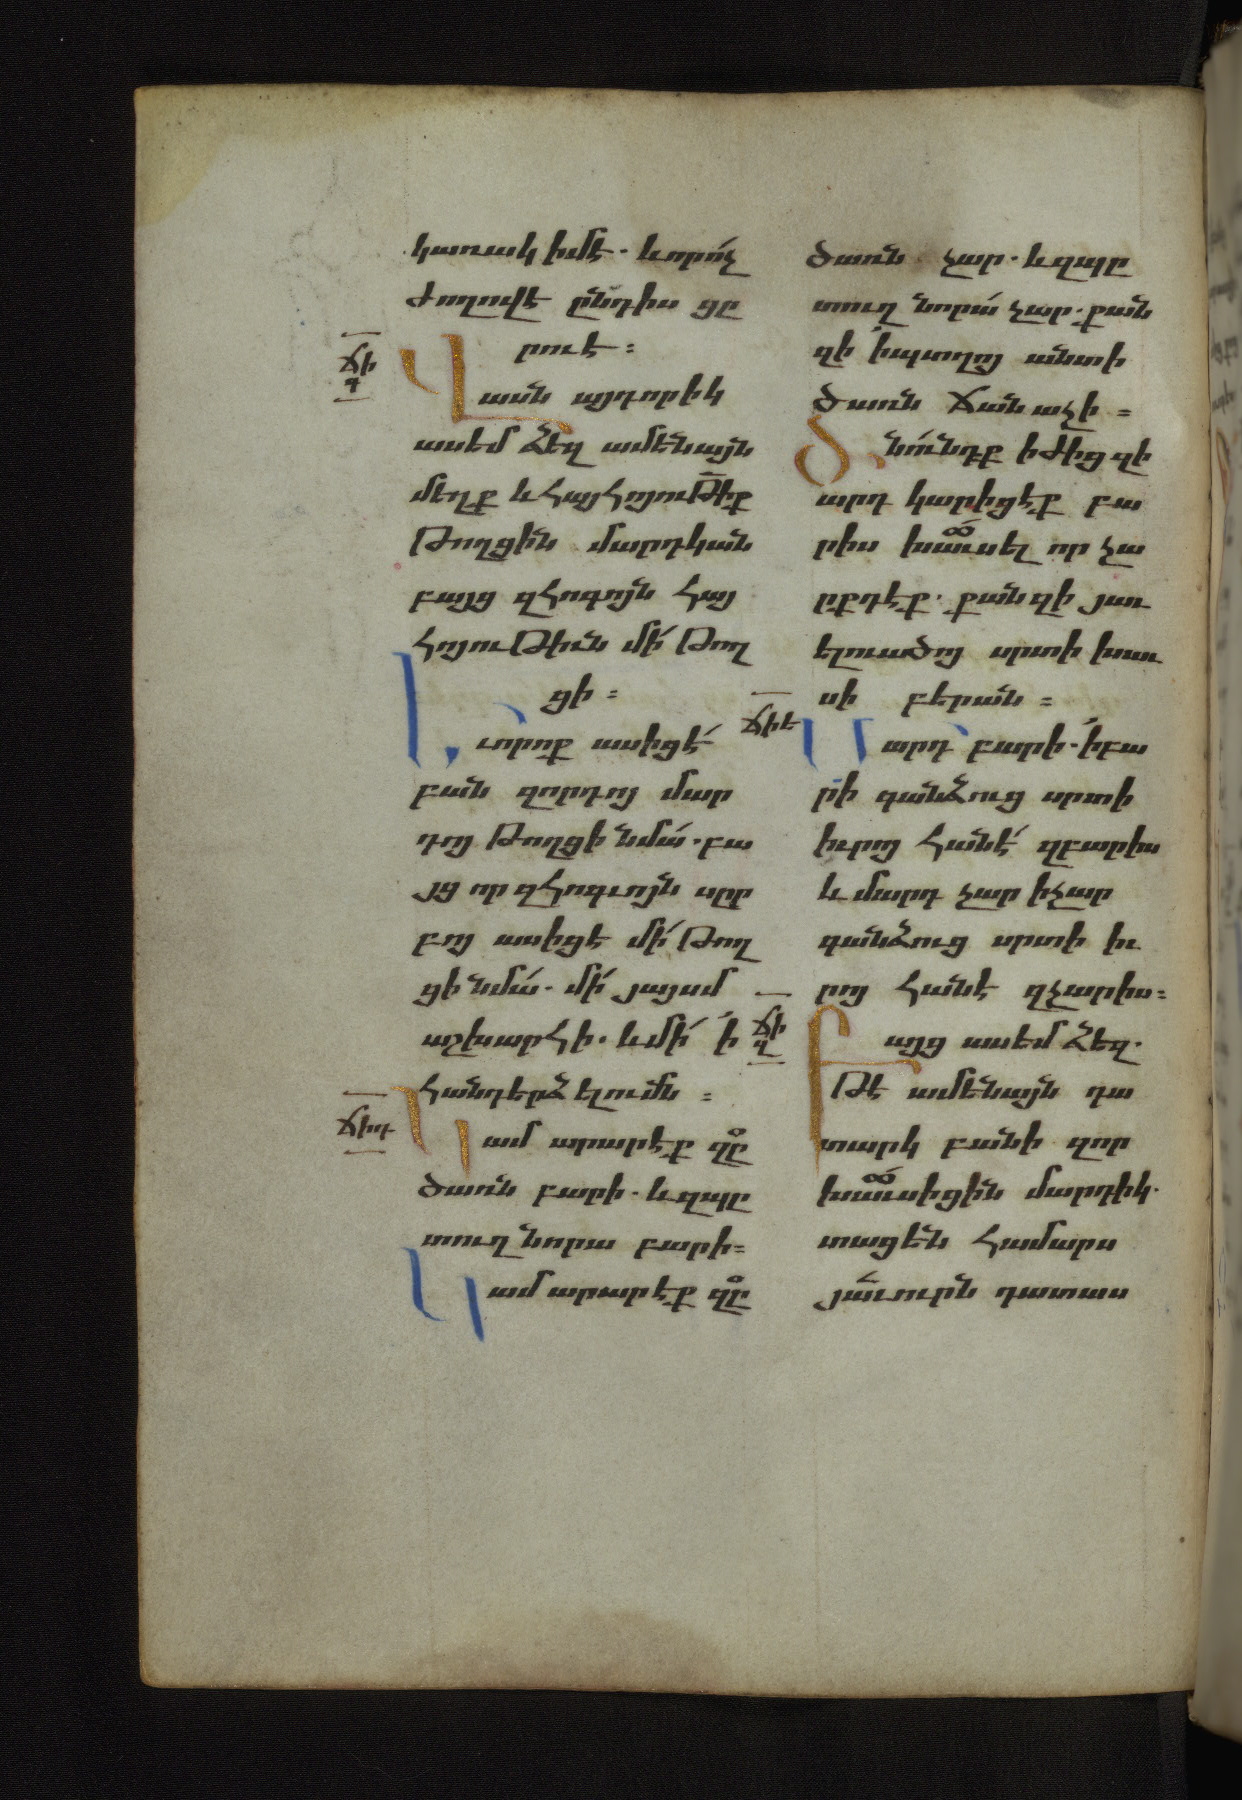 կառակ իմէ. և որո՛չ
ժողովէ ընդիս ցը
րուէ։
ՃԻԳ
Վասն այդորիկ
ասեմ ձեզ ամենայն
մեղք և հայհոյութիք
թողցին մարդկան
բայց զհոգոյն հայ
հոյութիւն մի՛ թող
ցի։
Եւ որոք ասիցէ՛
բան զորդոյ մար
դոյ թողցի նմա՛. բա
յց որ զհոգւոյն սըր
բոյ ասիցէ մի՛ թող
ցի նմա՛. մի՛ յայսմ
աշխարհի. և մի՛ ՛ի
հանդերձելումն։
ՃԻԴ
Կամ արարէք զծը
ծառն բարի. և զպը
տուղ նորա բարի։
Կամ արարէք զծը
ծառն չար. և զպը
տուղ նորա՛ չար. քան
զի ՛իպտղոյ անտի
ծառն ճանաչի։
Ծնո՛ւնդք իժից զի
արդ կարիցէք բա
րիս խօսել որ չա
րքդէք. քանզի յաւ
ելուածոյ սրտի խաւ
սի բերան։
ՃԻԵ
Մարդ բարի. ՛իբա
րի գանձուց սրտի
իւրոյ հանէ՛ զբարիս
և մարդ չար իչար
գանձուց սրտի իւ
րոյ հանէ զչարիս։
ՃԻԶ
Բայց ասեմ ձեզ.
թէ ամենայն դա
տարկ բանի զոր
խօսիցին մարդիկ.
տացեն համարս
յաւուրն դատաս